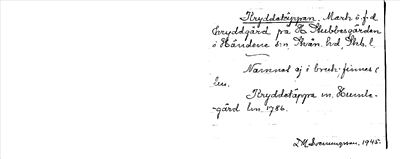 Kryddatäppan. Mark ö. f. d.
kryddgård på St. Stubbegården
i Händene sn, Kvån. hd, Skb. l.
Namnet ej i bruk, finnes i
lm.
Kryddatäppa m. Humle-
gård lm. 1786.
1945.